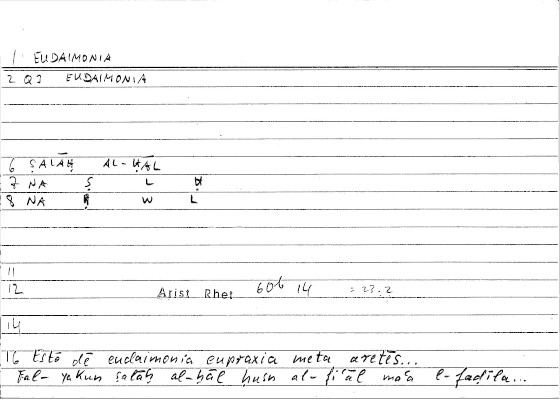 1 EUDAIMONIA
2 QJ EUDAIMONIA
6 ṢALĀḤ AL-ḤĀL
7 NA Ṣ L Ḥ
8 NA W L
11
12 Arist Rhet 60b 14 = 23.2
14
16 Estō dē eudaimonia eupraxia meta aretēs...
Fal-yakun ṣalāḥ al-ḥāl ḥusn al-fiʿāl maʿa l-faḍīla...